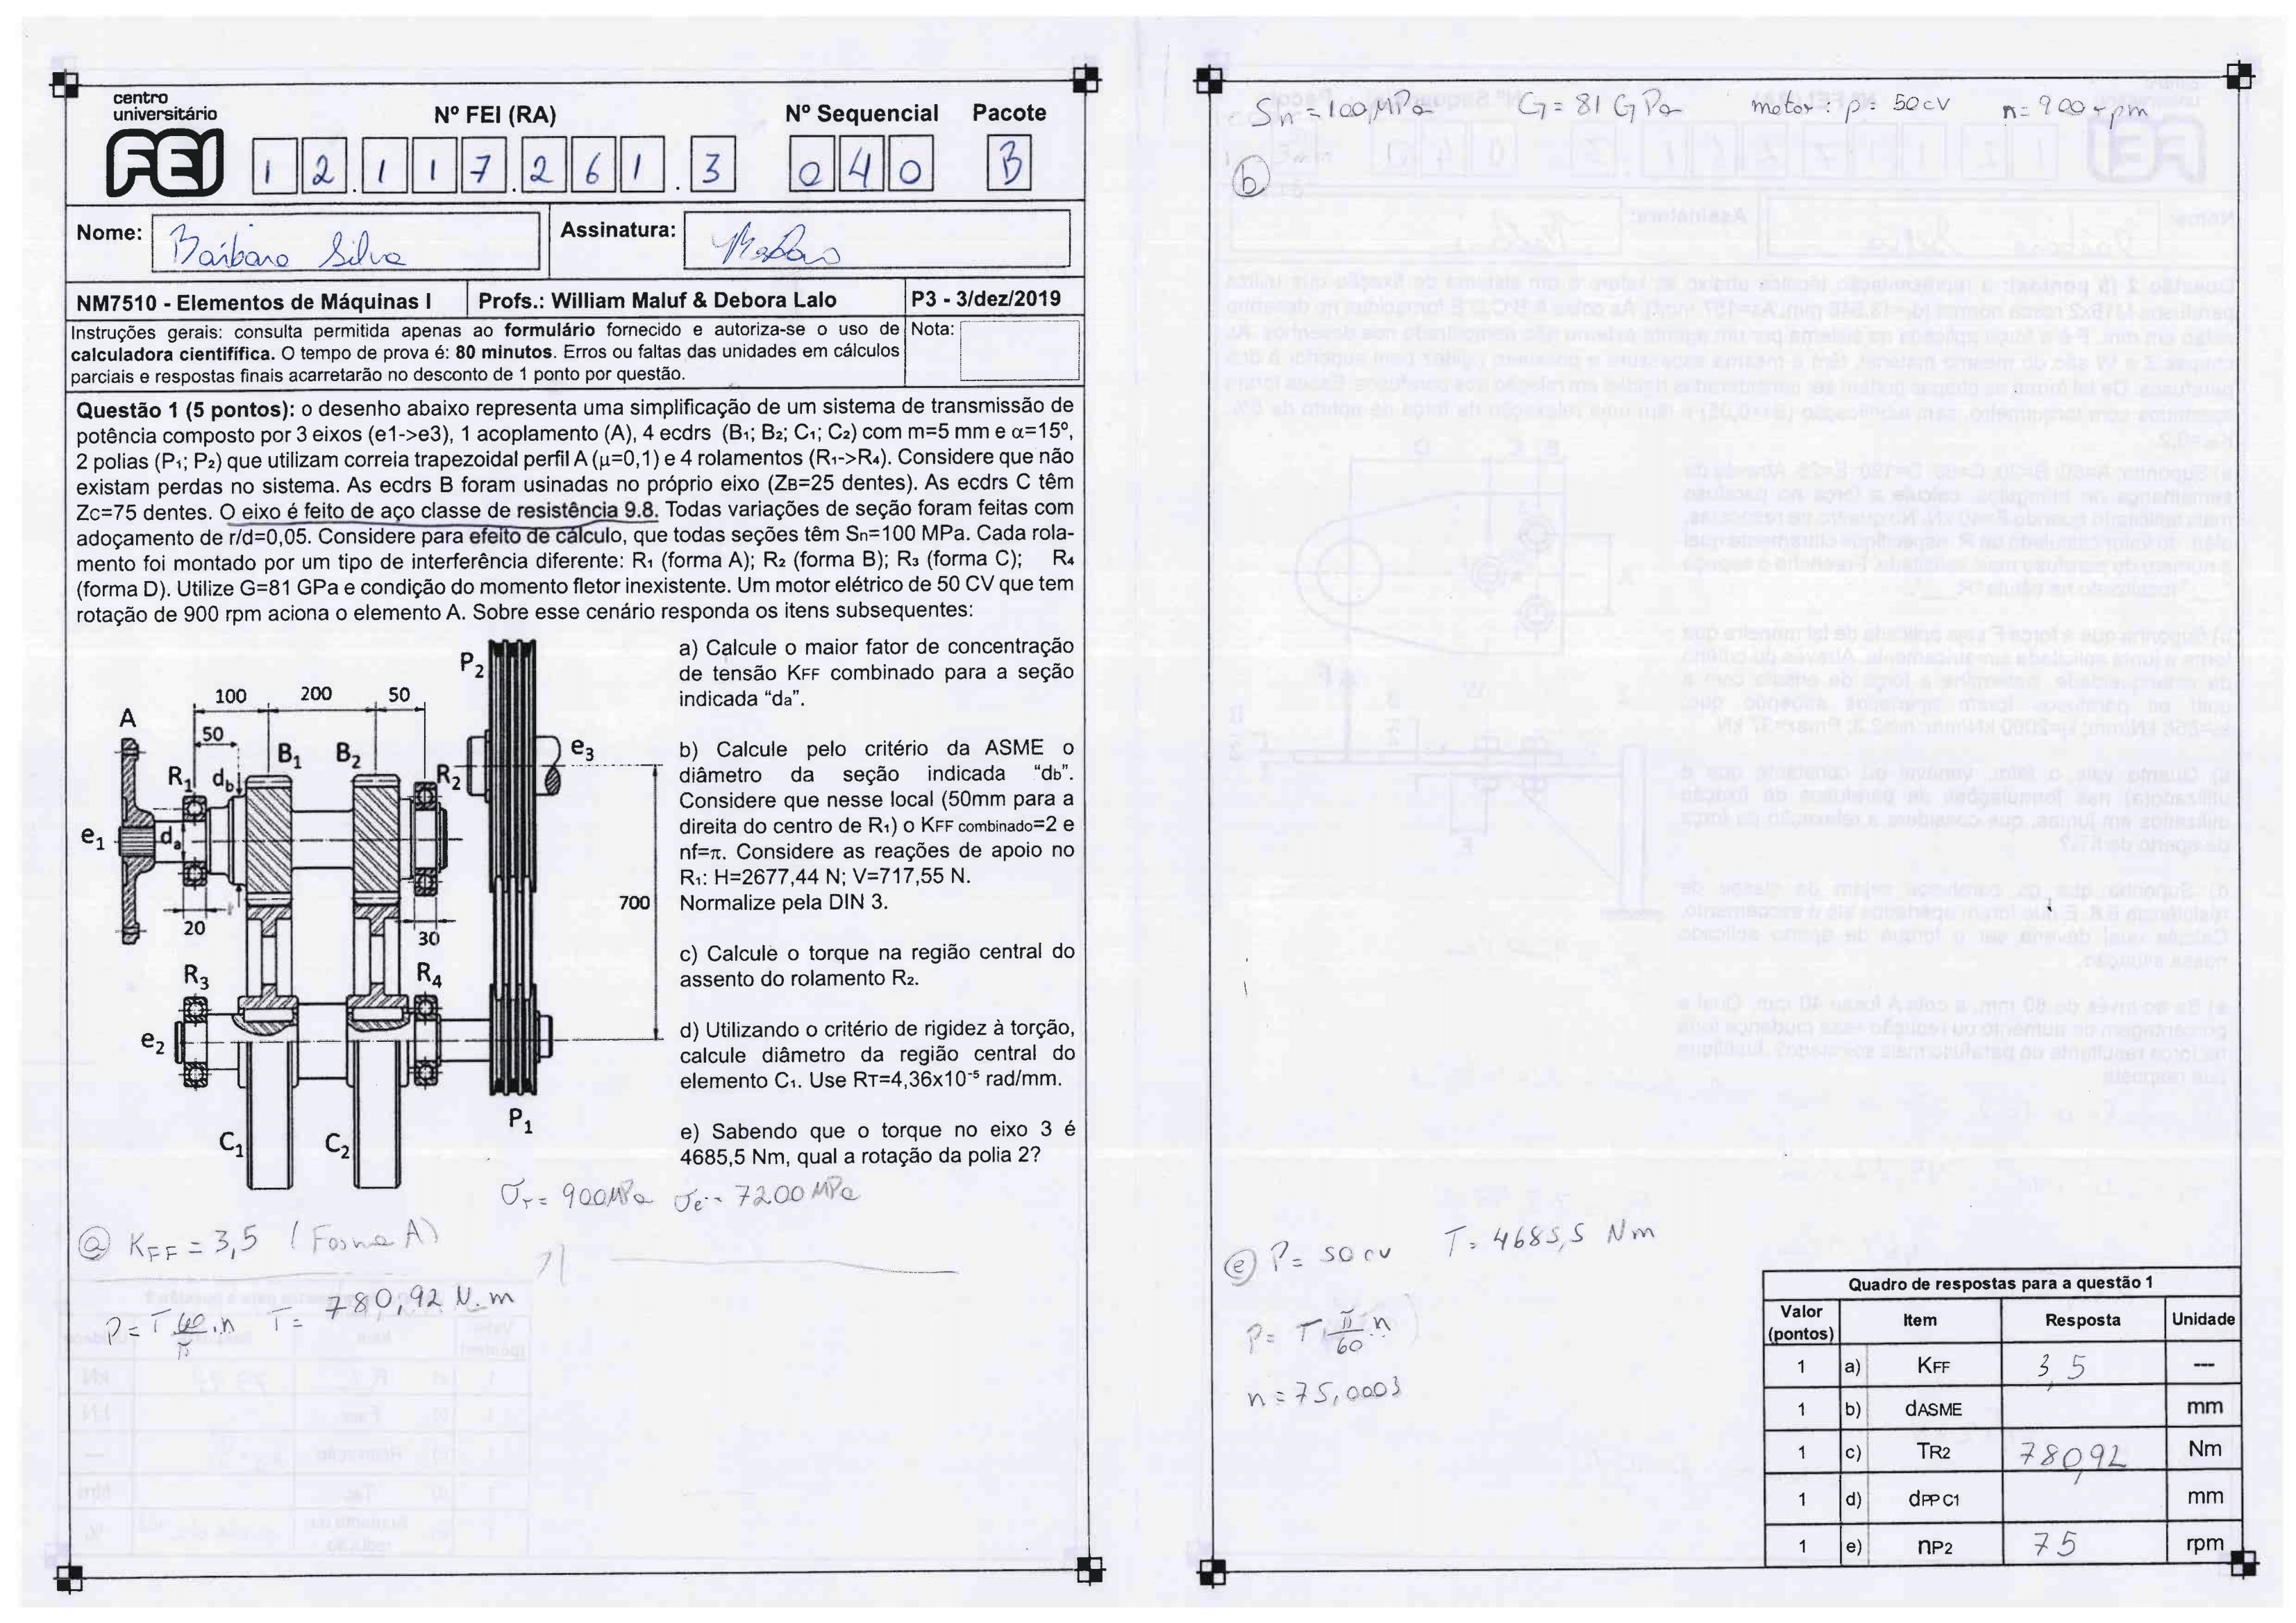 centro
universitário
FEI
Nº FEI (RA)
Nº Sequencial
Pacote
1 2 . 1 1 7 . 2 6 1 . 3
0 4 0
B
Nome:
Bárbara Silva
Assinatura:
NM7510 - Elementos de Máquinas I
Profs.: William Maluf & Debora Lalo
P3 - 3/dez/2019
Instruções gerais: consulta permitida apenas ao formulário fornecido e autoriza-se o uso de
calculadora cientififica. O tempo de prova é: 80 minutos. Erros ou faltas das unidades em cálculos
parciais e respostas finais acarretarão no desconto de 1 ponto por questão.
Nota:
Questão 1 (5 pontos): o desenho abaixo representa uma simplificação de um sistema de transmissão de
potência composto por 3 eixos (e1->e3), 1 acoplamento (A), 4 ecdrs (B1; B2; C1; C2) com m=5 mm e α=15º,
2 polias (P1; P2) que utilizam correia trapezoidal perfil A (μ=0,1) e 4 rolamentos (R1->R4). Considere que não
existam perdas no sistema. As ecdrs B foram usinadas no próprio eixo (ZB=25 dentes). As ecdrs C têm
Zc=75 dentes. O eixo é feito de aço classe de resistência 9.8. Todas variações de seção foram feitas com
adoçamento de r/d=0,05. Considere para efeito de cálculo, que todas seções têm Sn=100 MPa. Cada rola-
mento foi montado por um tipo de interferência diferente: R1 (forma A); R2 (forma B); R3 (forma C); R4
(forma D). Utilize G=81 GPa e condição do momento fletor inexistente. Um motor elétrico de 50 CV que tem
rotação de 900 rpm aciona o elemento A. Sobre esse cenário responda os itens subsequentes:
a) Calcule o maior fator de concentração
de tensão KFF combinado para a seção
indicada "da".
b) Calcule pelo critério da ASME o
diâmetro da seção indicada "db".
Considere que nesse local (50mm para a
direita do centro de R1) o KFF combinado=2 e
nf=π. Considere as reações de apoio no
R1: H=2677,44 N; V=717,55 N.
Normalize pela DIN 3.
c) Calcule o torque na região central do
assento do rolamento R2.
d) Utilizando o critério de rigidez à torção,
calcule diâmetro da região central do
elemento C1. Use RT=4,36x10⁻⁵ rad/mm.
e) Sabendo que o torque no eixo 3 é
4685,5 Nm, qual a rotação da polia 2?
P2
100 200 50
A
50
B1 B2
e3
R1 db
R2
e1
da
700
20
30
R3
R4
e2
P1
C1
C2
σr = 900MPa σe = 7200 MPa
(a) KFF = 3,5 (Forma A)
P = T 60/π .n T = 780,92 N.m
Sn = 100 MPa G = 81 GPa motor: p = 50cv n = 900 rpm
(b)
(e) P = 50 cv T = 4685,5 Nm
P = T . π/60 n
n = 75,0003
Quadro de respostas para a questão 1
Valor (pontos) Item Resposta Unidade
1 a) KFF 3,5 ---
1 b) dASME mm
1 c) TR2 780,92 Nm
1 d) dPP C1 mm
1 e) nP2 75 rpm